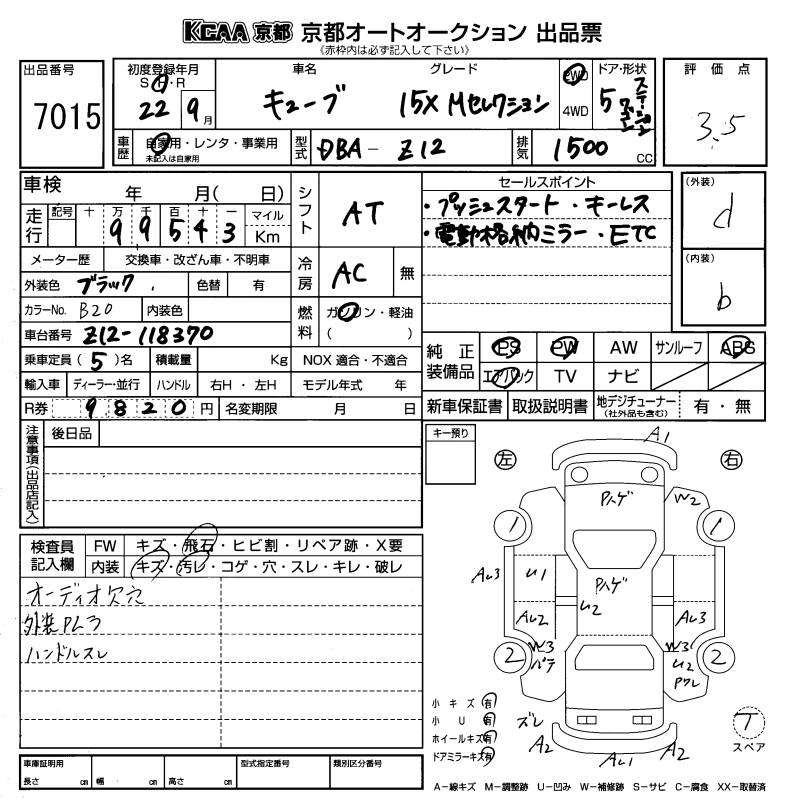 KCAA 京都 京都オートオークション 出品票
《赤枠内は必ず記入して下さい》
出品番号
7015
初度登録年月
S・H・R
22 9月
車名 グレード
キューブ 15X Mセレクション
2WD
4WD
ドア・形状
5 ステーションワゴン
評価点
3.5
車歴
自家用・レンタ・事業用
未記入は自家用
型式 DBA-Z12
排気 1500 CC
車検 年 月( 日)
走行 記号 十 万 千 百 十 一 マイル
99543 Km
メーター歴 交換車・改ざん車・不明車
外装色 ブラック 色替 有
カラーNo. B20 内装色
車台番号 Z12-118370
乗車定員(5)名 積載量 Kg
輸入車 ディーラー・並行 ハンドル 右H・左H
R券 9820円 名変期限 月 日
シフト AT
冷房 AC 無
燃料 ガソリン・軽油
( )
NOX 適合・不適合
モデル年式 年
セールスポイント
・プッシュスタート・キーレス
・電動格納ミラー・ETC
(外装)
d
(内装)
b
純正装備品
PS PW AW サンルーフ ABS
エアバック TV ナビ
新車保証書 取扱説明書 地デジチューナー (社外品も含む) 有・無
注意事項(出品店記入)
後日品
キー預り
左 右
A1
Pハゲ W2
1 1
AU3 U1 Pハゲ
U2
AU2 AU3
W3 パテ W3 U2 Pワレ
2 2
ズレ
A2 AU1 A2
T
スペア
検査員記入欄
FW キズ・飛石・ヒビ割・リペア跡・X要
内装 キズ・汚レ・コゲ・穴・スレ・キレ・破レ
オーディオ欠穴
ハンドルスレ
小キズ 有
小U 有
ホイールキズ 有
ドアミラーキズ 有
車庫証明用
長さ cm 幅 cm 高さ cm
型式指定番号 類別区分番号
A-線キズ M-調整跡 U-凹み W-補修跡 S-サビ C-腐食 XX-取替済